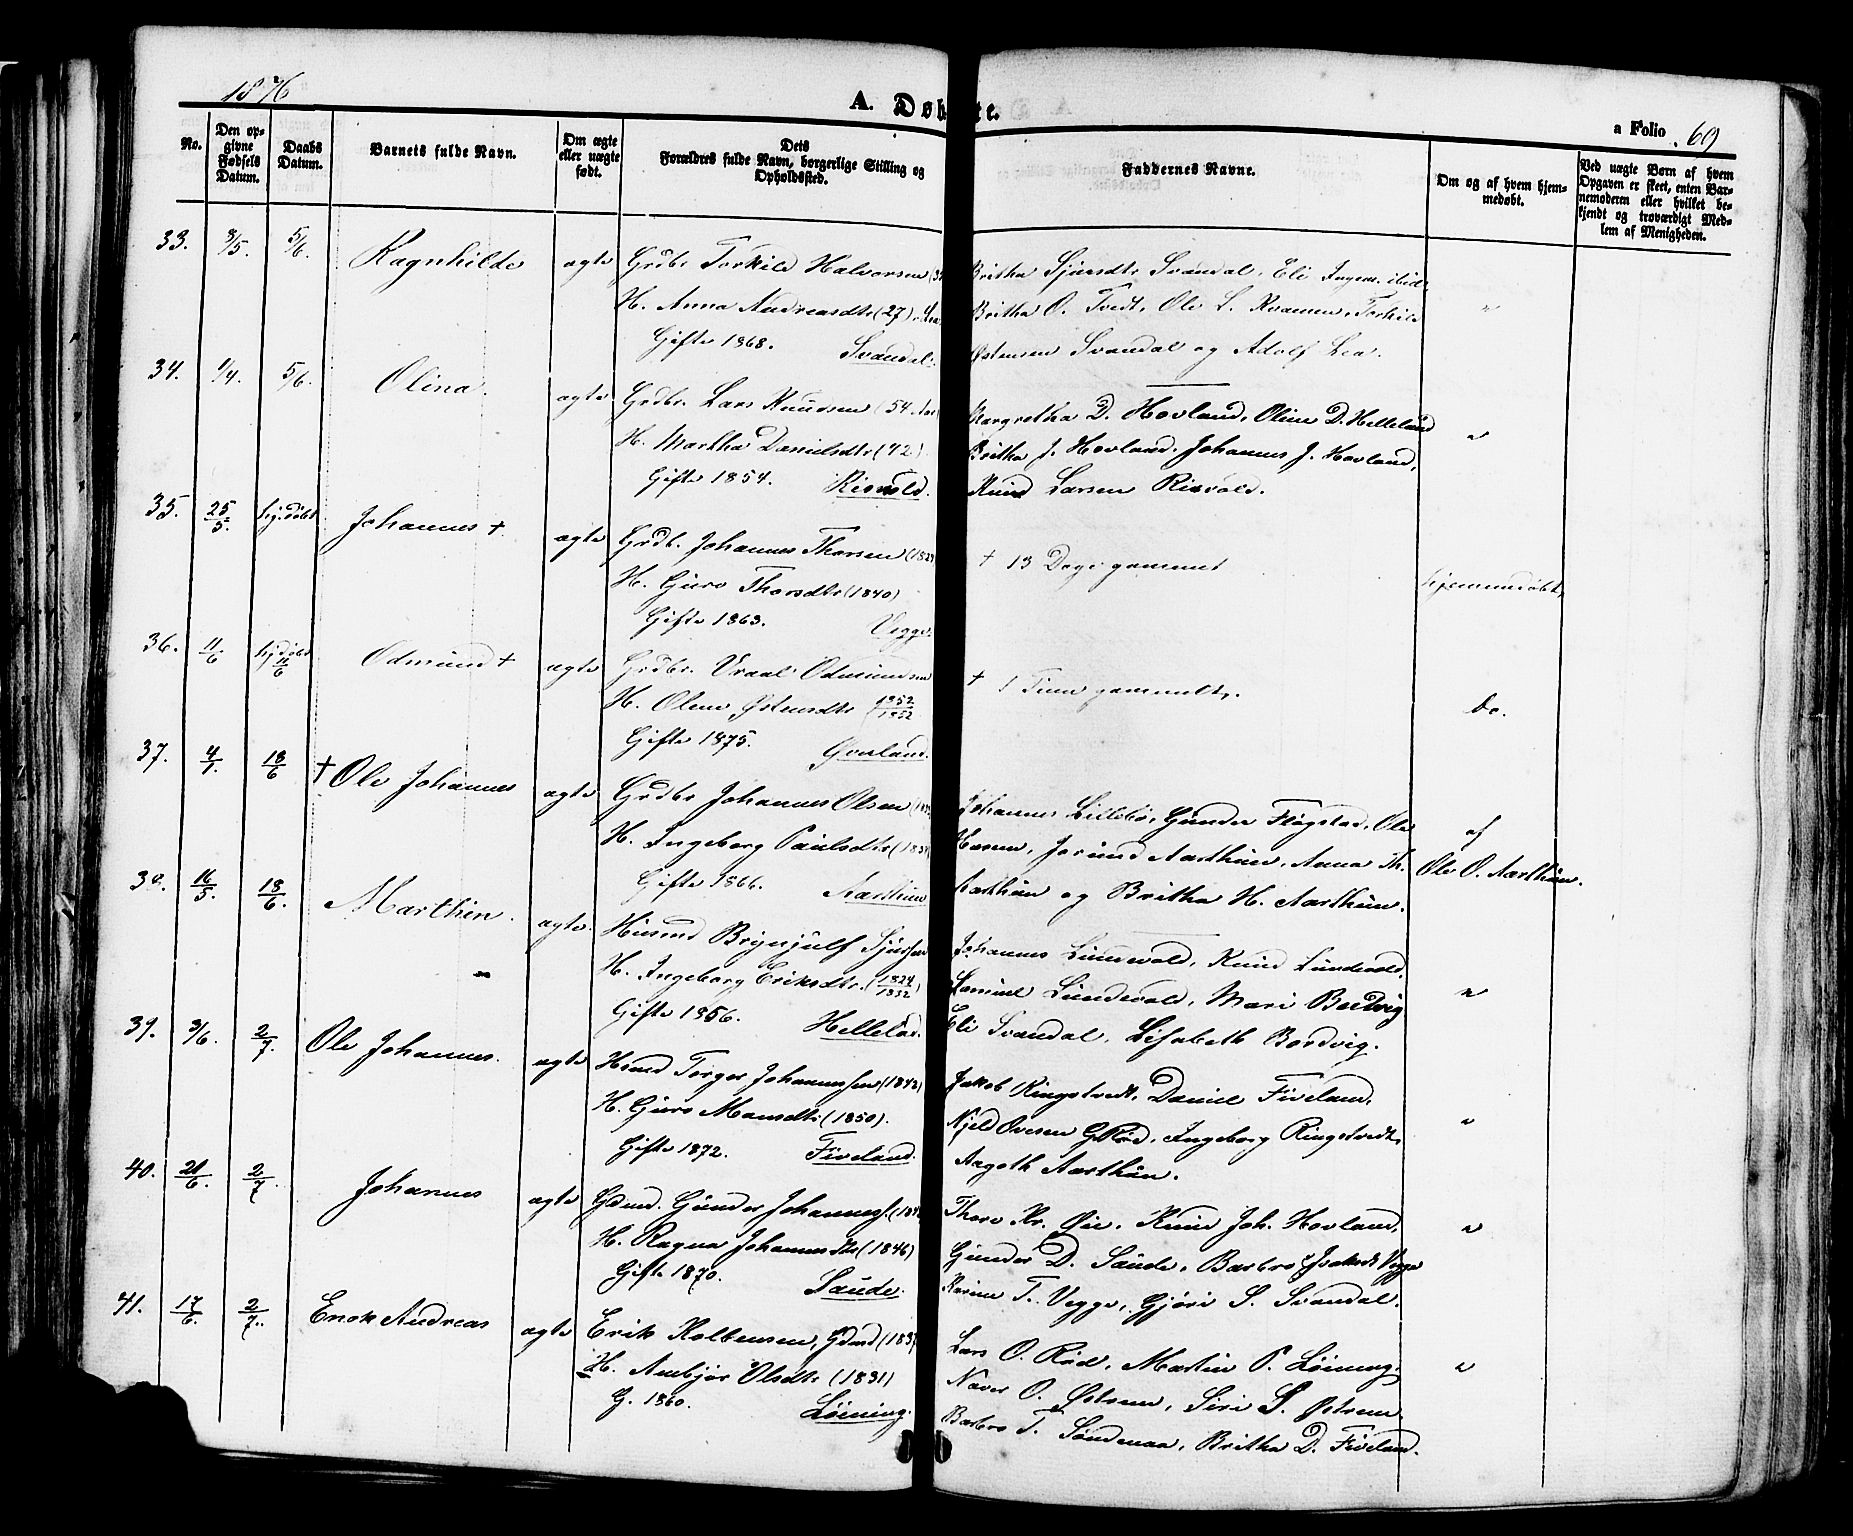 1876
A. Døbte.
a Folio 69
No.
Den opgivne Fødsels Datum.
Daabs Datum.
Barnets fulde Navn.
Om ægte eller uægte født.
Dets Forældres fulde Navn, borgerlige Stilling og Opholdssted.
Faddernes Navne.
Om og af hvem hjemmedøbt.
Ved uægte Børn af hvem Opgaven er skeet, enten Barnemoderen eller hvilket bekjendt og troværdigt Medlem af Menigheden.
33. 8/5. 5/6. Ragnhilde ægte Grdbr Torkild Halvorsen
H. Anna Andreasdtr (27)
Gifte 1868. Svandal.
Britha Sjursdtr Svandal, Eli Ingem. ibid.
Britha O. Tvedt, Ole L. Kvamen, Torkild
Østensen Svandal og Adolf Lea.
"
34. 1/4. 5/6. Olina. ægte Grdbr. Lars Knudsen (54 Aar)
H. Martha Danielsdtr (42)
Gifte 1854. Risvold.
Margretha D. Hovland, Oline D. Helleland
Britha J. Hovland, Johannes J. Hovland,
Knud Larsen Risvold.
"
35. 25/5. Hjdøbt Johannes + ægte Grdb. Johannes Thorsen
H. Guro Thorsdtr (1840)
Gifte 1863. Vegge.
+ 13 Dage gammel
hjemmedøbt,
36. 11/6 Hjdøbt 11/6 Odmund + ægte Grdbr. Vraal Odmundsen
H. Oline Østensdtr 1852/1852
Gifte 1875. Øvreland.
+ 1 Time gammelt.
do.
37. 4/1. 18/6 + Ole Johannes ægte Grdbr Johannes Olsen
H. Ingeborg Paulsdtr
Gifte 1866. Aarthun
Johannes Lillebø, Gunder Fløgstad, Ole
Hamm, Jorund Aarthun, Anna Th.
Aarthun og Britha H. Aarthun.
af
Ole O. Aarthun.
38. 16/5. 18/6. Marthin. ægte Husmd Brynjulf Sjursen
H. Ingeborg Eriksdtr. (1824/1832)
Gifte 1856. Hellelad.
Johannes Lundevold, Knud Lundevold,
Samuel Lundevold, Mari Bordvig
Eli Svandal, Lisabeth Bordvig.
"
39. 3/6. 2/7. Ole Johannes. ægte Husmd Torger Johannessen (1842)
H. Guro Monsdtr (1850).
Gifte 1872. Fiveland.
Jakob Ringstvedt, Daniel Fiveland,
Njeld Ovesen G. Rød, Ingeborg Ringstvedt,
Aagoth Aarthun.
"
40. 21/6. 2/7. Johannes ægte Gdmd. Gunder Johanness.
H. Ragna Johannesdtr (1846)
Gifte 1870. Saude.
Thore Kr. Øie, Knud Joh. Hovland,
Gunder D. Saude, Barbro Isaksdt Vegge
Karine T. Vegge, Gjøri S. Svandal.
"
41. 17/6. 2/7. Enok Andreas ægte Erik Kolbensen, Gdmd
H. Ambjør Olsdtr (1831)
G. 1860. Løining.
Lars O. Rød, Martin P. Løining,
Naver O. Østrem, Siri S. Østrem
Barbro T. Søndenaa, Britha D. Fiveland.
"